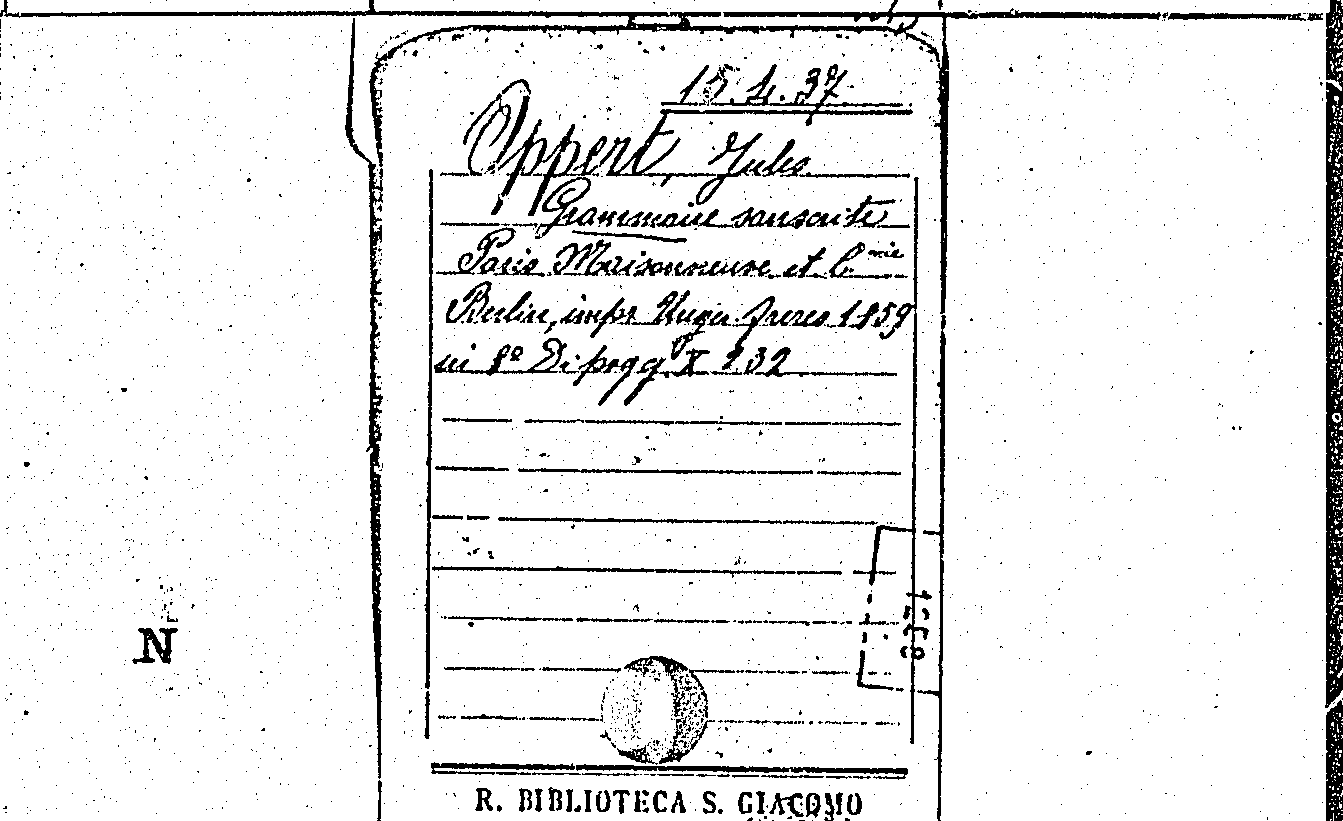 15.4.37
Oppert, Jules
Grammaire sanscrite
Paris Maisonneuve et C.mie
Berlin, impr Unger frères 1859
in 8º Di pagg. X 232
N
R. BIBLIOTECA S. GIACOMO